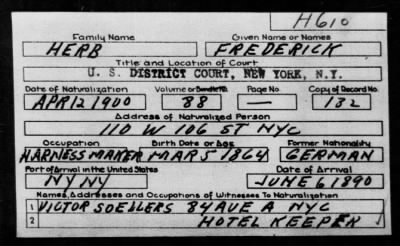 H610
Family Name Given Name or Names
HERB FREDERICK
Title and Location of Court
U. S. DISTRICT COURT, NEW YORK, N.Y.
Date of Naturalization Volume or Bundle No. Page No. Copy of Record No.
APR 12 1900 88 — 132
Address of Naturalized Person
110 W 106 ST NYC
Occupation Birth Date or Age Former Nationality
HARNESS MAKER MAR 5 1864 GERMAN
Port of Arrival in the United States Date of Arrival
NY NY JUNE 6 1890
Names, Addresses and Occupations of Witnesses To Naturalization
1 VICTOR SOELLERS 84 AVE A NYC
2 HOTEL KEEPER